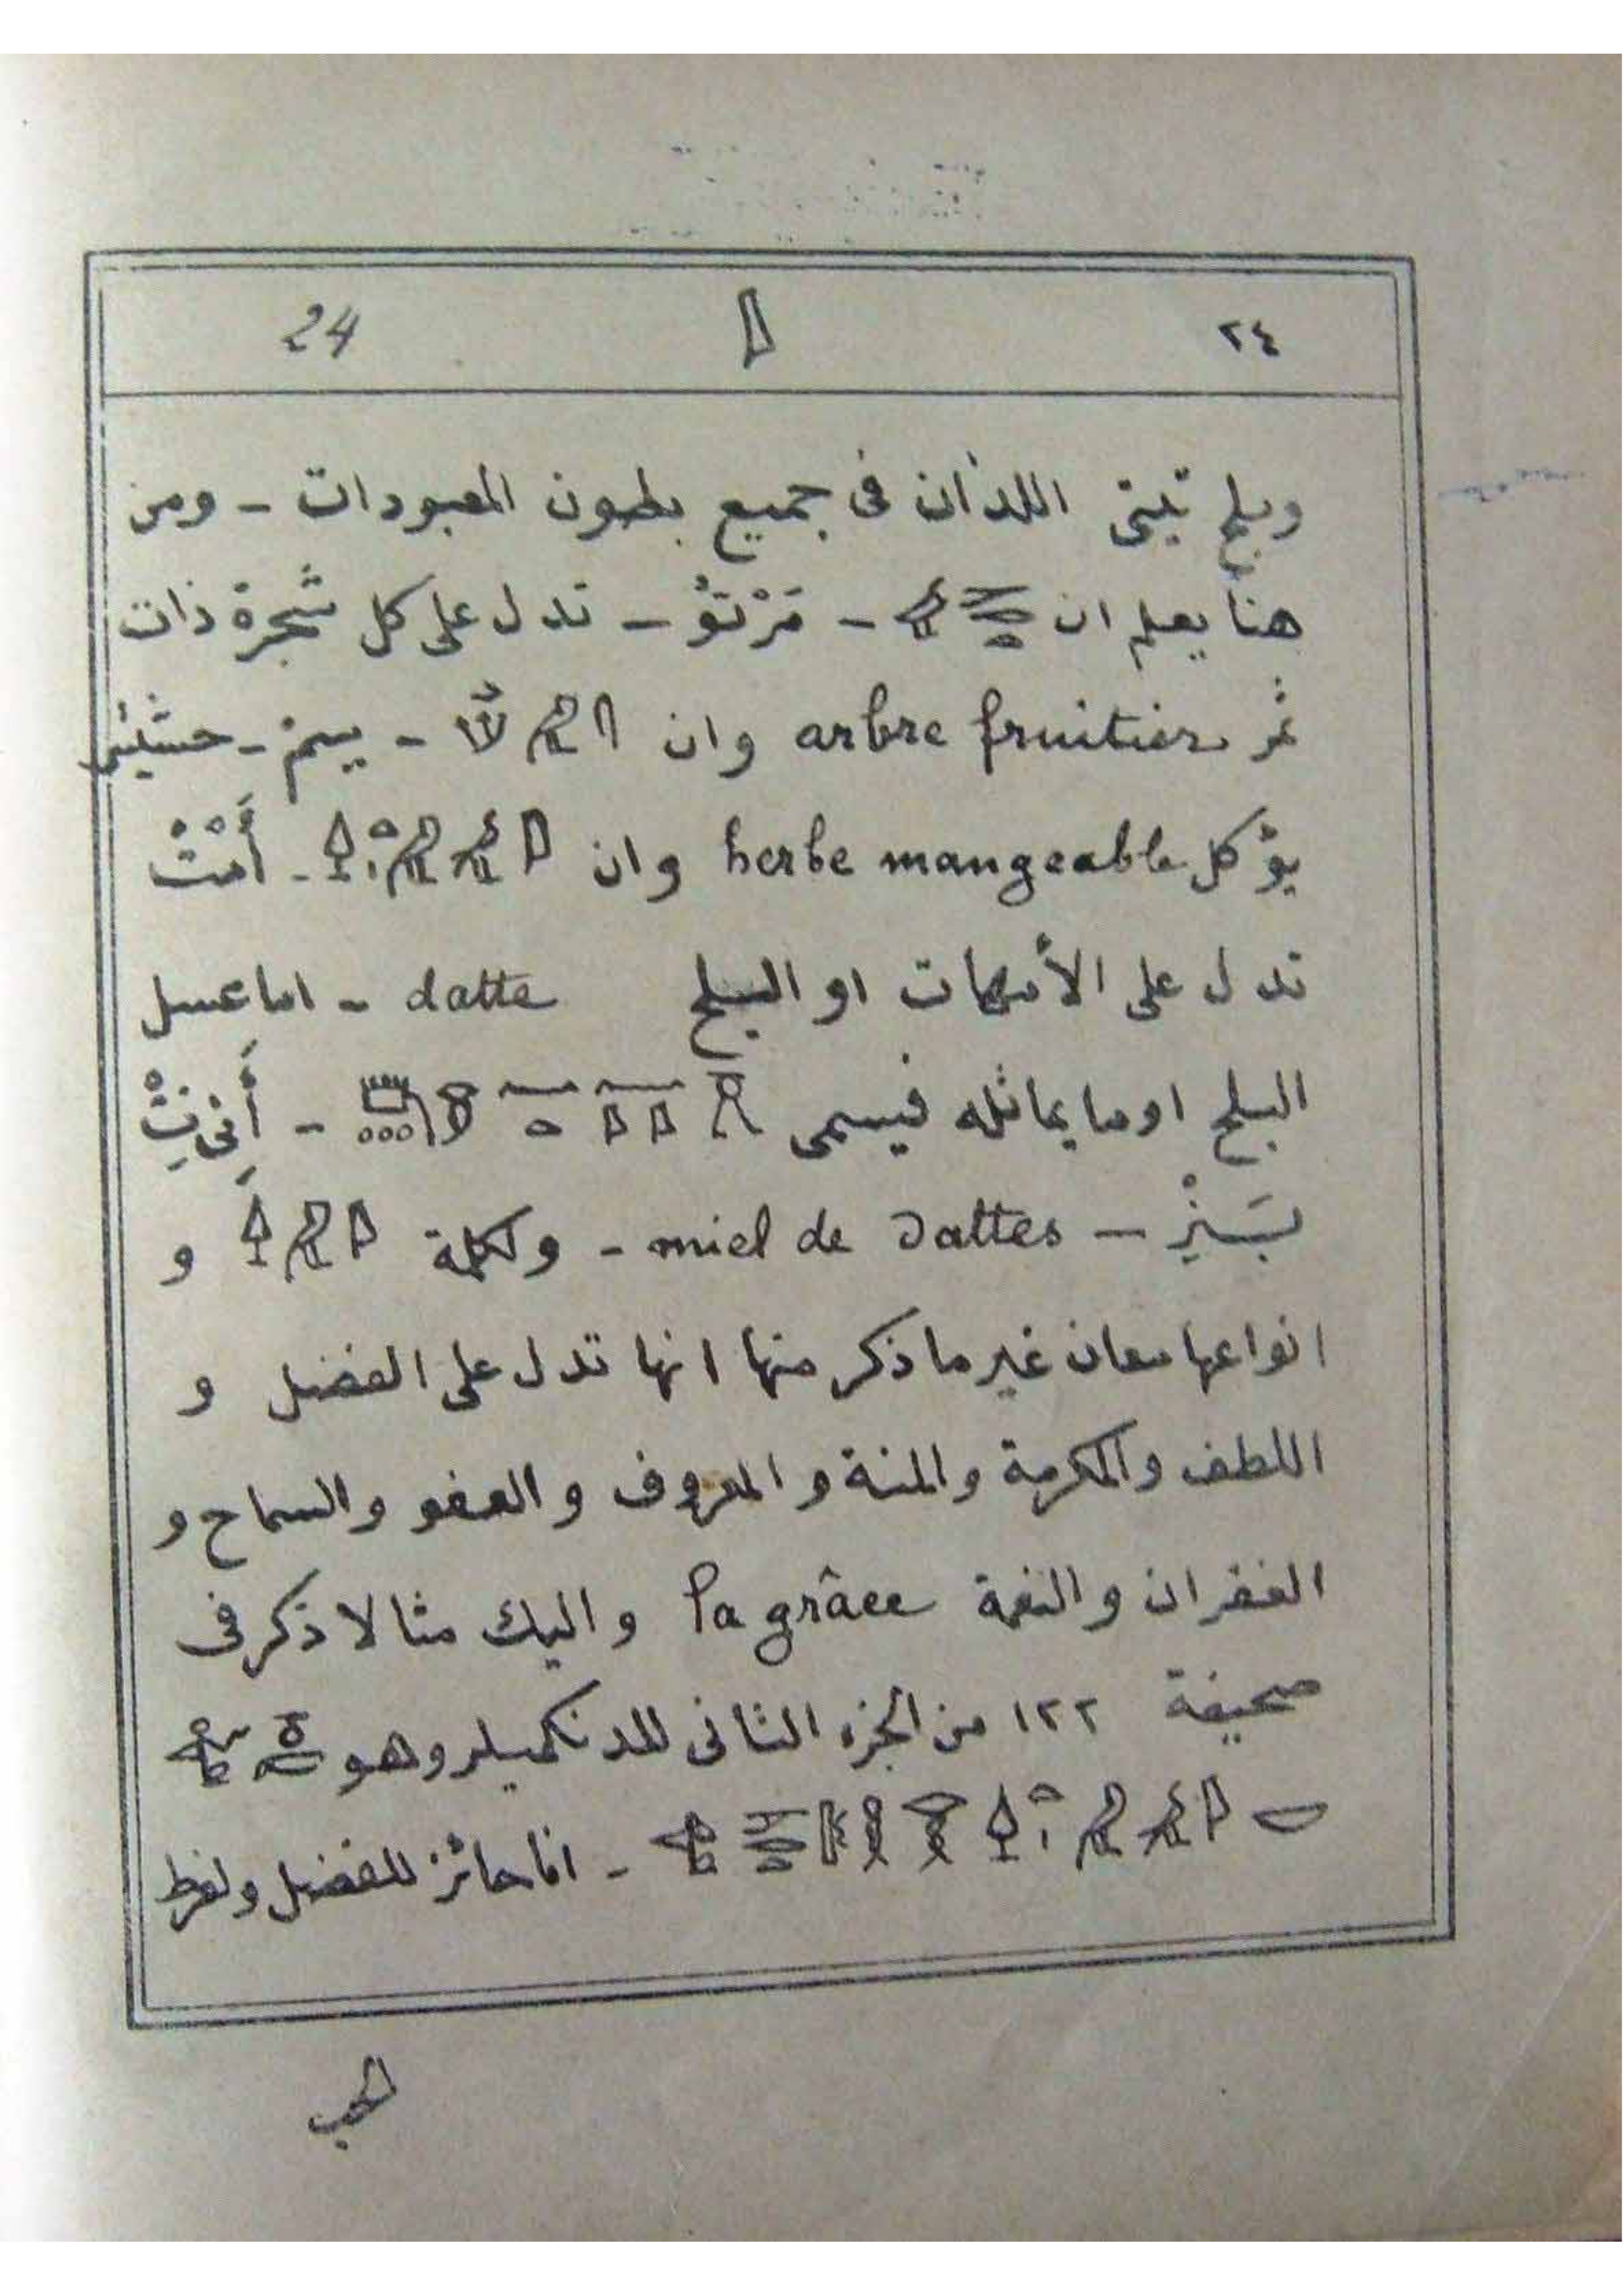 ٢٤ 𓇋 24
وبلح تبتى اللذان فى جميع بطون المعبودات - ومن
هنا يعلم ان - مَرْتُو - تدل على كل شجرة ذات
ثمر arbre fruitier وان - حشيش
يؤكل herbe mangeable وان - أَمْتْ
تدل على الأمهات او البلح datte - اما عسل
البلح او ما يماثله فيسمى - أَنِى نِتْ
miel de dattes - ولكلمة و
انواعها معان غير ما ذكر منها انها تدل على الفضل و
اللطف والمكرمة والمنة والمعروف والعفو والسماح و
الغفران والنعمة la grâce واليك مثالا ذكر فى
صحيفة ١٢٢ من الجزء الثانى للدنكميلر وهو
- انا حائز للفضل ولفرط
الحب